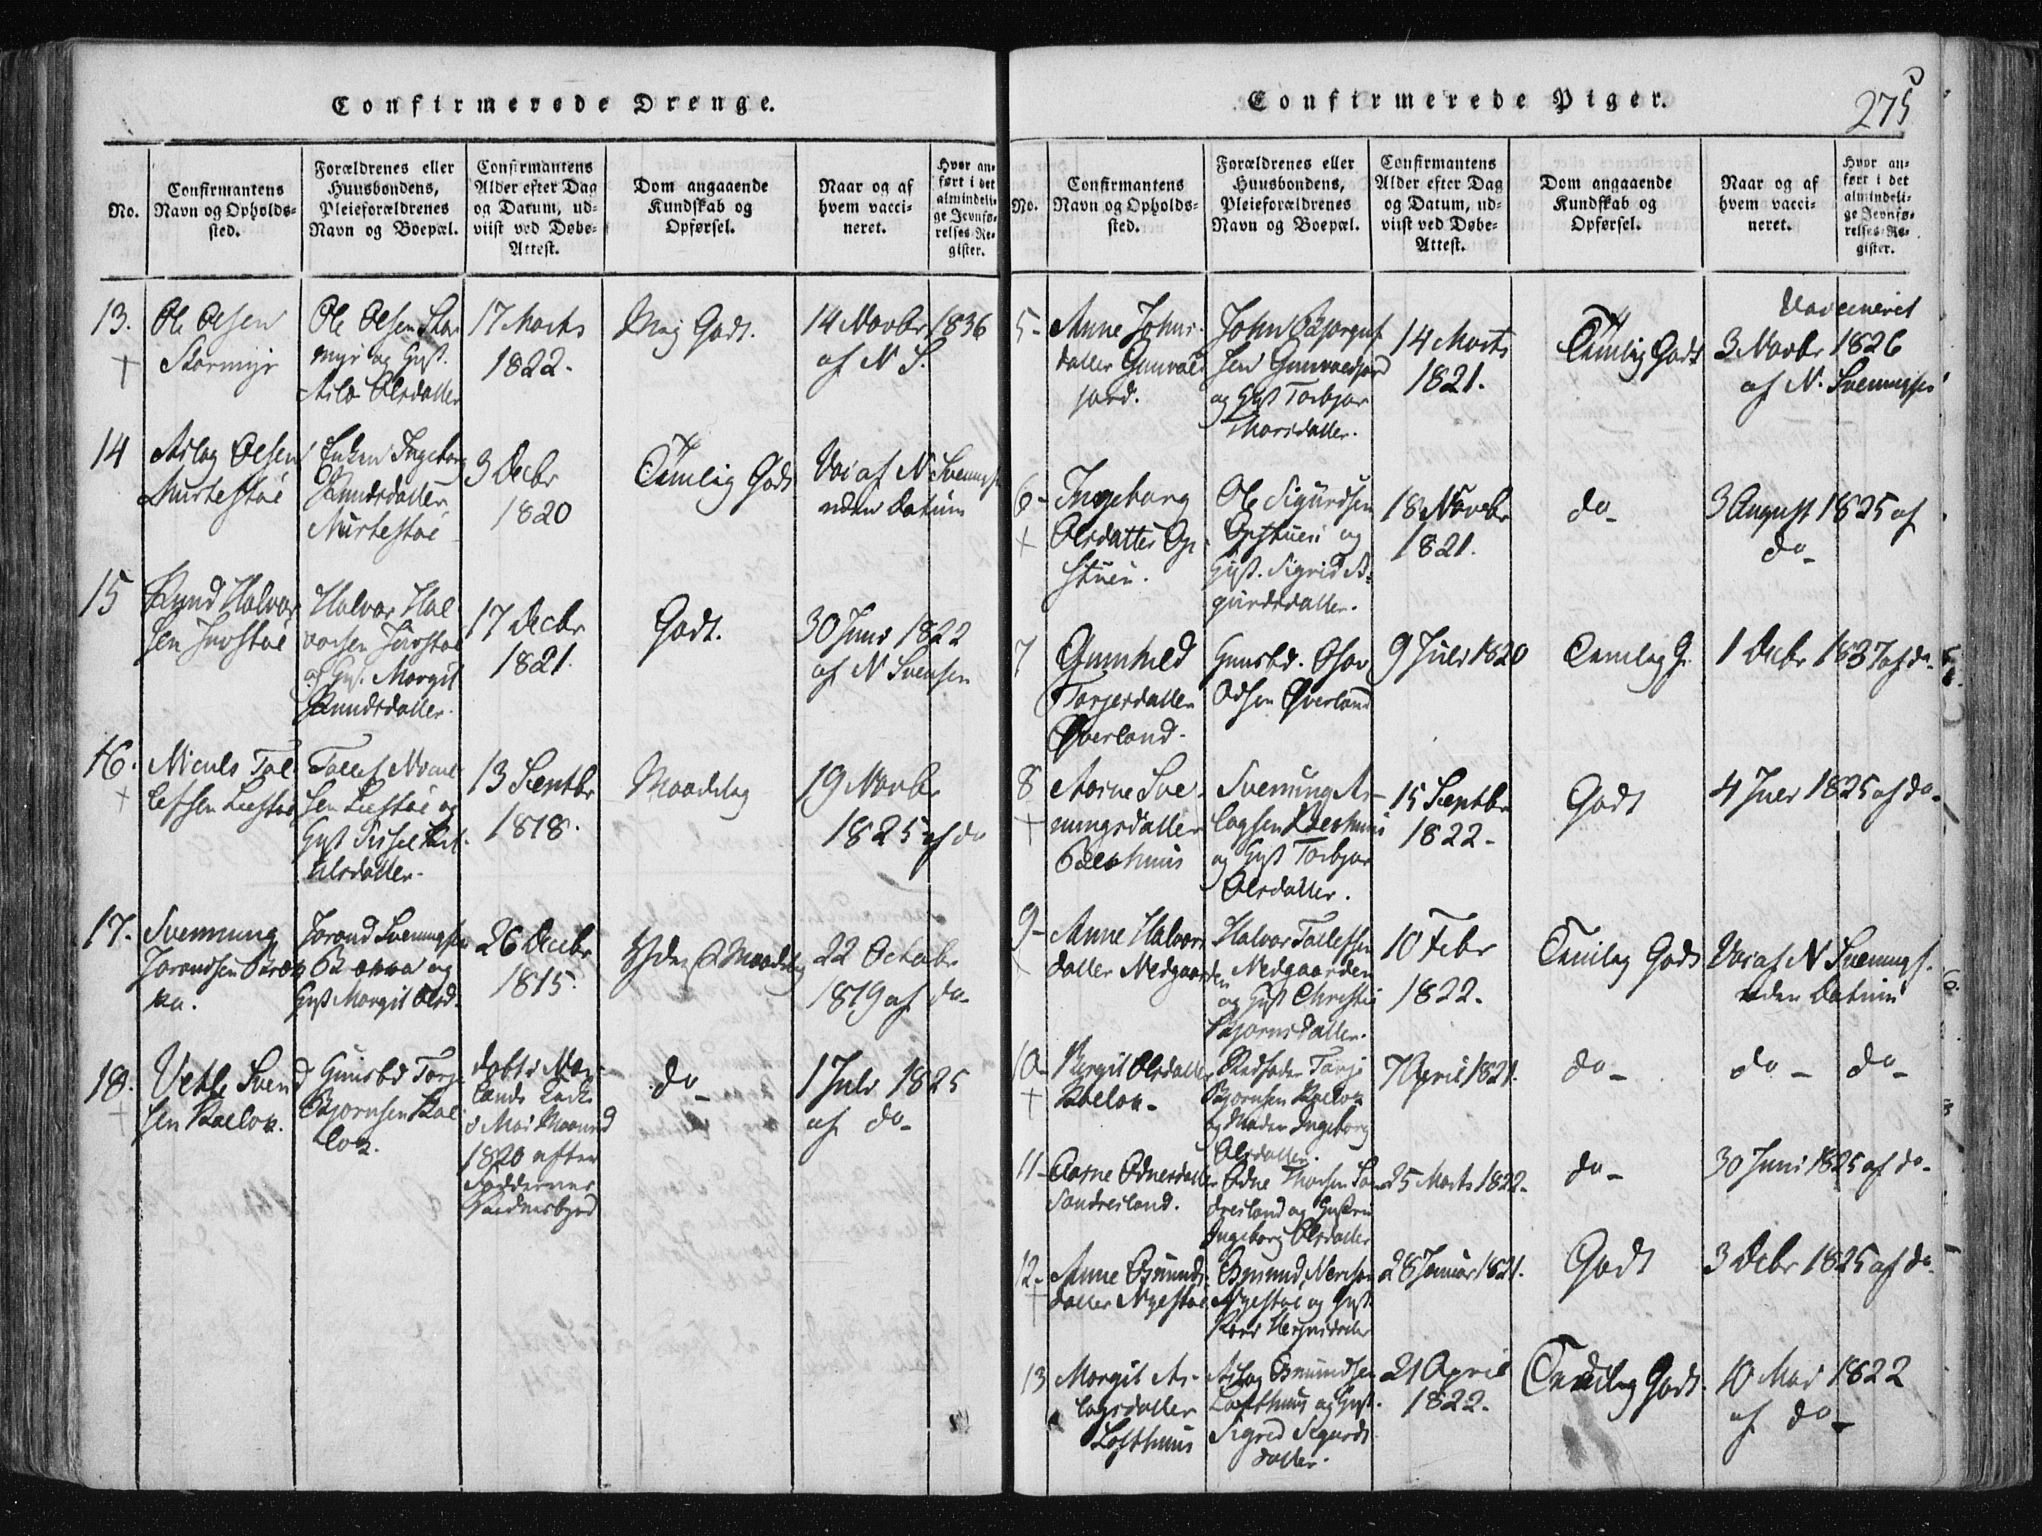 Confirmerede Drenge.
No.
Confirmantens
Navn og Opholds-
sted.
Forældrenes eller
Huusbondens,
Pleieforældrenes
Navn og Boepæl.
Confirmantens
Alder efter Dag
og Datum, ud-
viist ved Døbe-
Attest.
Dom angaaende
Kundskab og
Opførsel.
Naar og af
hvem vacci-
neret.
Hvor an-
ført i det
almindeli-
ge Jevnfø-
relses-Re-
gister.
13.
Ole Olsen
Stormyr
Ole Olsen Stor
myr og Gust.
Olsdatter
17 Marts
1822.
Maj Godt.
14 Novbr 1836
af N S.
14
Aslag Olsen
Murtestøe
Enken Ingeborg
Knudsdatter
Murtestøe
3 Decbr
1820
Temlig Godt
Vac af N Svennings
uden Datum
15
Knud Halvor
sen
Halvor Hal
vorsen
og Gust. Margit
Knudsdatter.
17 Decbr
1821.
Godt.
30 Juni 1822
af N Svensen
16.
Niculs Tol
lefsen
Tollef Nicul
sen
Gust
13 Septbr
1818.
Maadelig
19 Novbr
1825 af do
17.
Svennung
Jorandsen
Jorand Svenningsen
og
Gust Margit Olsd.
26 Decbr
1815.
Yderst Maadelig
22 Octobr
1819 af do
18.
Vetle Svend
sen Kaelok.
Gunsbd Torje
Bjornsen Kae
lok.
døbt i
i Mai Maaned
1820 efter
do
1 Juli 1825
af do
Confirmerede Piger.
275
No.
Confirmantens
Navn og Opholds-
sted.
Forældrenes eller
Huusbondens,
Pleieforældrenes
Navn og Boepæl.
Confirmantens
Alder efter Dag
og Datum, ud-
viist ved Døbe-
Attest.
Dom angaaende
Kundskab og
Opførsel.
Naar og af
hvem vacci-
neret.
Hvor an-
ført i det
almindeli-
ge Jevnfø-
relses-Re-
gister.
5
Anne Johns-
datter Gunvald
jord.
John Bjorgulf
sen Gunvaldjord
og Gust Torbjor
Thorsdatter.
14 Marts
1821.
Temlig Godt
Vaccineret
3 Novbr 1826
af N. Svennings
6
Ingeborg
Olsdatter Op-
stuen.
Ole Sigurdsen
Opstuen og
Gust. Sigrid Si-
gurdsdatter.
18 Novbr
1821.
do
3 August 1825 af
do
7
Gunhild
Torjersdatter
Øverland.
Gunsbd.
Øverland
9 Juli 1820
Temlig G.
1 Decbr 1837 af do
8
Aasne Sve-
nungsdatter
Svennung As-
lagsen
og Gust Torbjor
Olsdatter.
15 Septbr
1822.
Godt
4 Juli 1825 af do
9
Anne Halvors
datter Nedgaarden
Halvor Tollefsen
Nedgaarden
og Gust Christi
Bjornsdatter.
10 Febr
1822.
Temlig Godt
Vac af N Svennings.
uden Datum
10
Bergit Olsdatter
Kaelok
Stedfader Torje
Bjornsen Kaelok
og Moder Ingeborg
Olsdatter.
7 April 1821.
do
do do
11
Aasne Odnesdatter
Sondresland.
Odne Thorsen Son
dresland og Gustru
Ingeborg Olsdatter
25 Marts 1822.
do
30 Juni 1825 af do
12
Anne Osmunds-
datter Nystoel
Osmund
Nystoel og Gust
28 Januar 1821.
Godt
3 Debr 1825 af do
13
Margit As-
lagsdatter
Lofthuus
Aslag Osmundsen
Lofthuus og Gust.
Sigrid Sigurds
datter.
21 April
1822.
Temlig Godt.
10 Mai 1822
af do